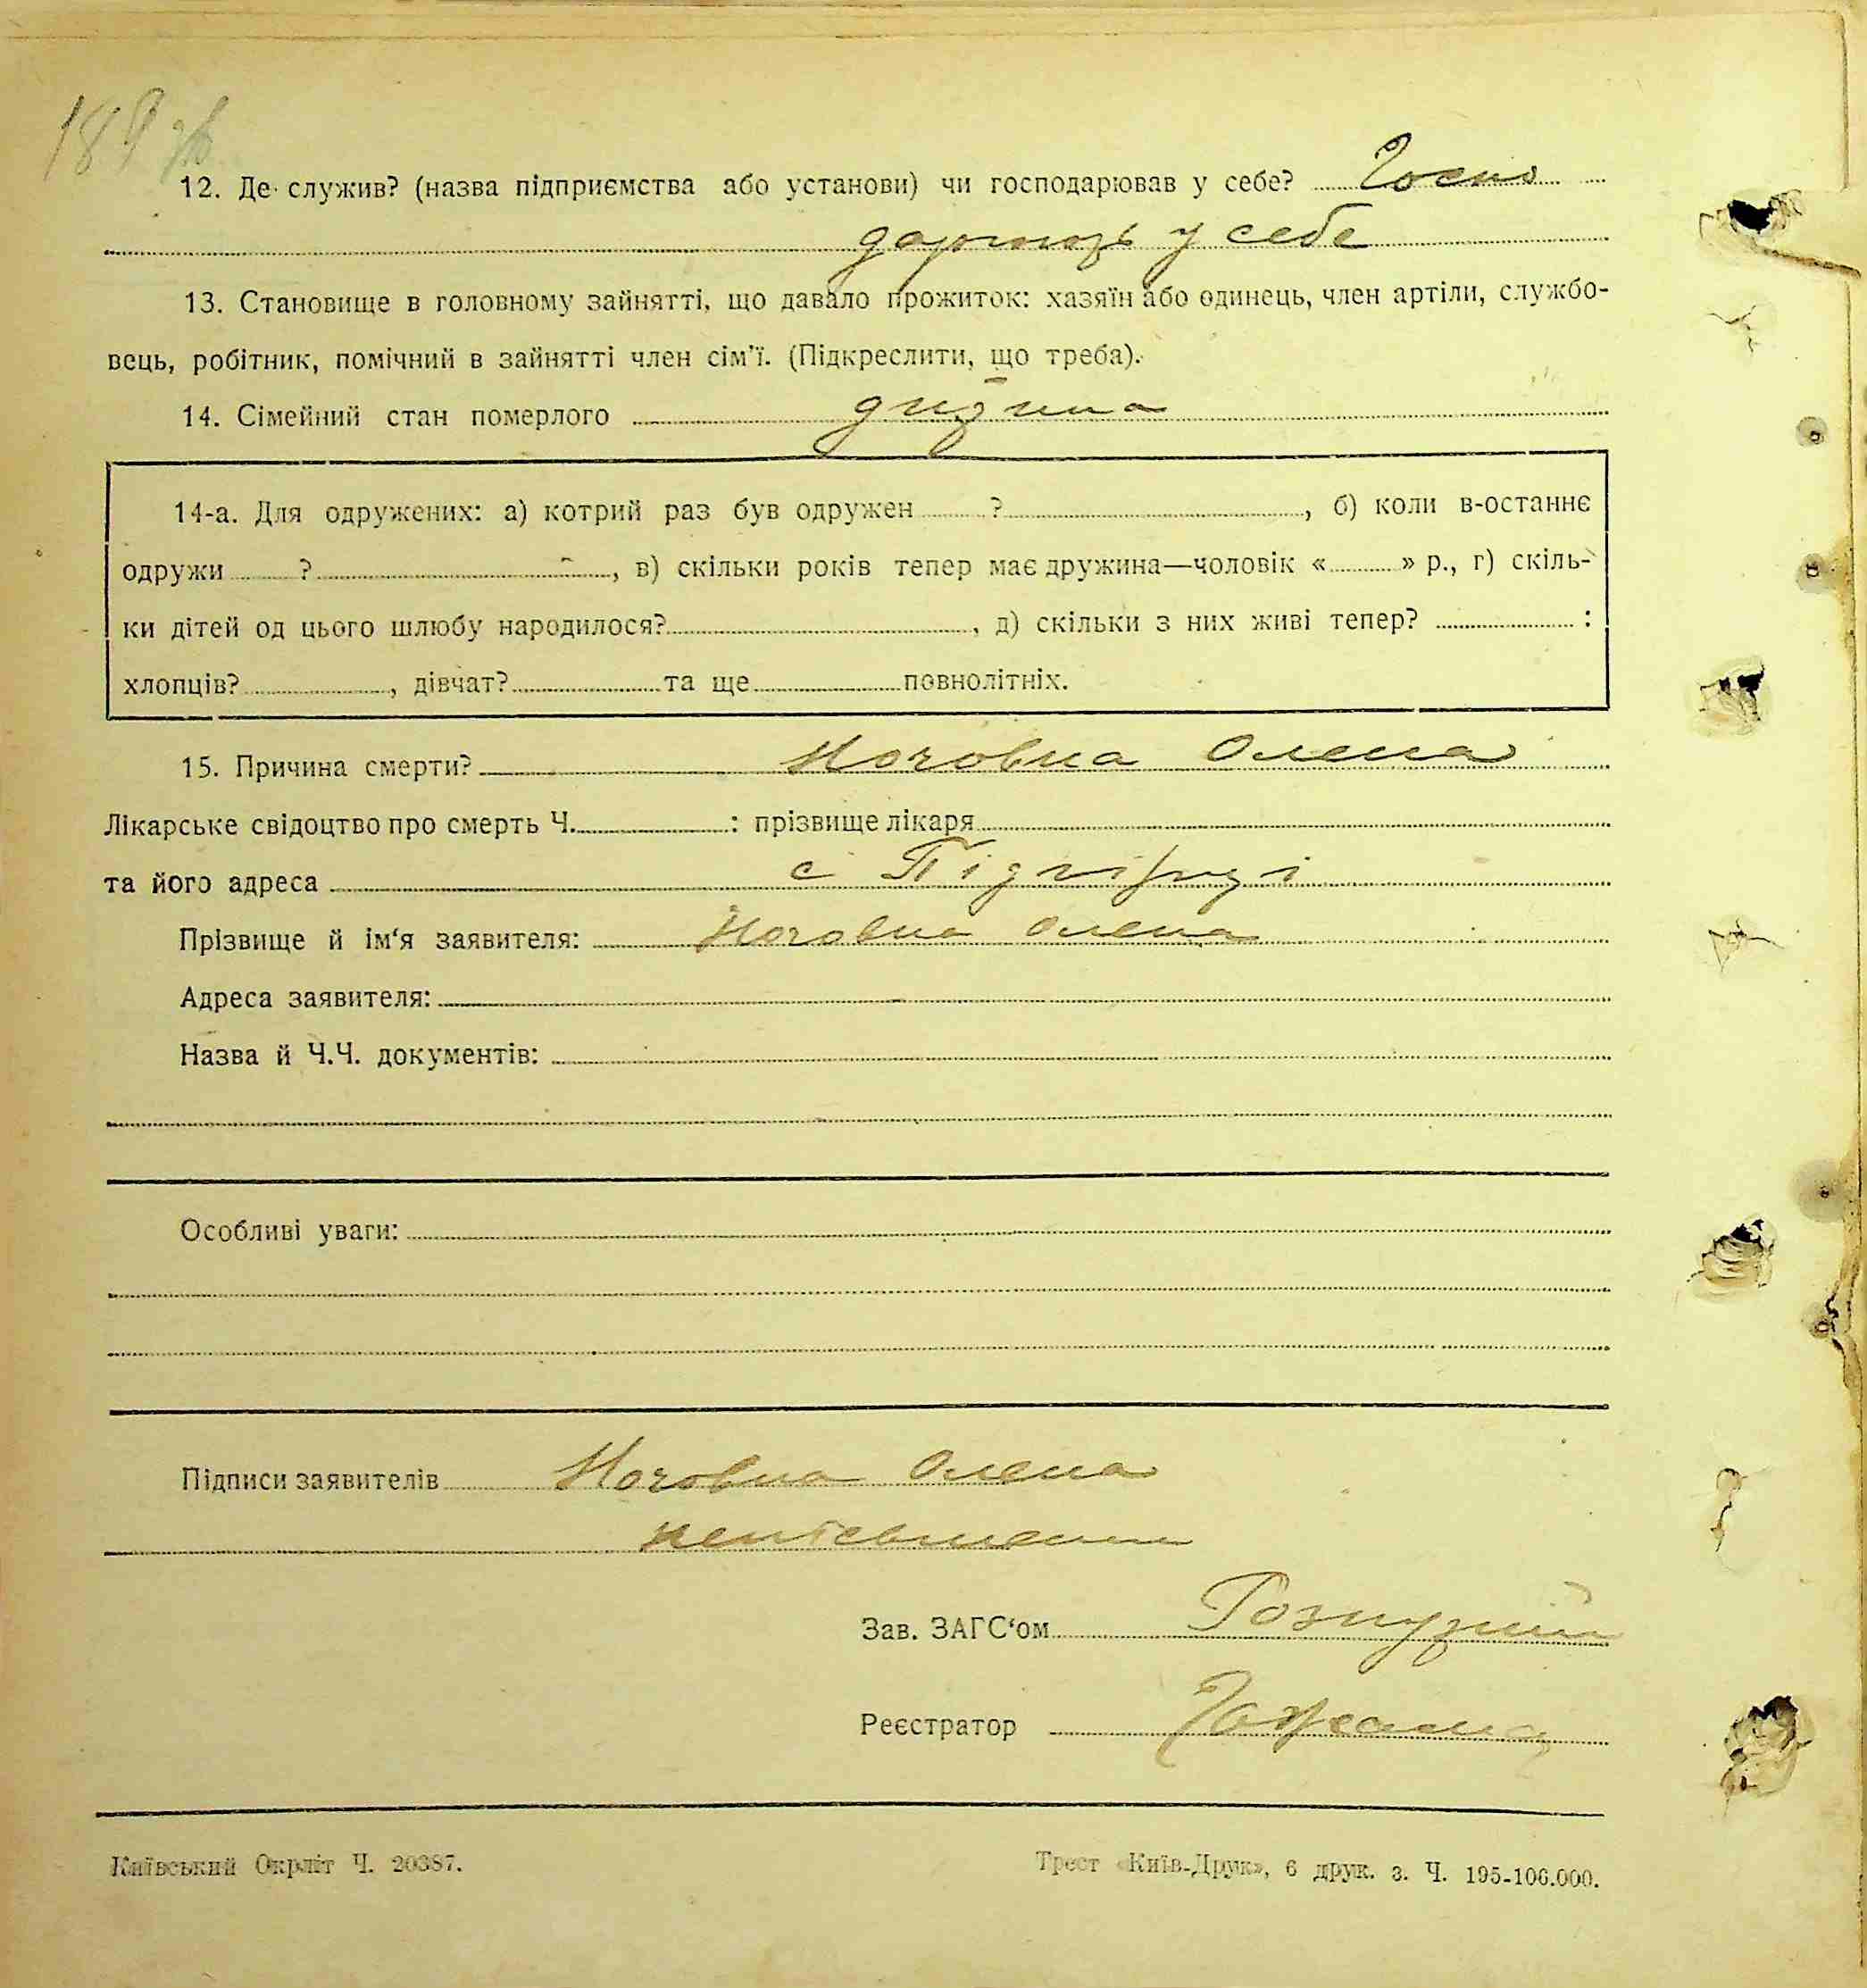 189 зв
12. Де служив? (назва підприємства або установи) чи господарював у себе? Госпо
дарюють у себе
13. Становище в головному зайнятті, що давало прожиток: хазяїн або одинець, член артіли, службо-
вець, робітник, помічний в зайнятті член сім'ї. (Підкреслити, що треба).
14. Сімейний стан померлого
14-а. Для одружених: а) котрий раз був одружен ? , б) коли в-останнє
одружи ? , в) скільки років тепер має дружина—чоловік « » р., г) скіль-
ки дітей од цього шлюбу народилося? , д) скільки з них живі тепер? :
хлопців? , дівчат? та ще повнолітніх.
15. Причина смерти? Олена
Лікарське свідоцтво про смерть Ч. : прізвище лікаря
та його адреса с Підгірці
Прізвище й ім'я заявителя: Олена
Адреса заявителя:
Назва й Ч.Ч. документів:
Особливі уваги:
Підписи заявителів Олена
неписьменна
Зав. ЗАГС'ом
Реєстратор
Київський Окрліт Ч. 20387.
Трест «Київ-Друк», 6 друк. з. Ч. 195-106.000.